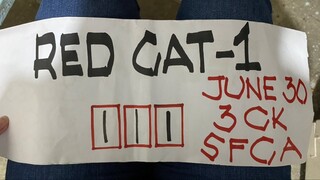 RED CAT-1
JUNE 30
111
3 CK
SFCA